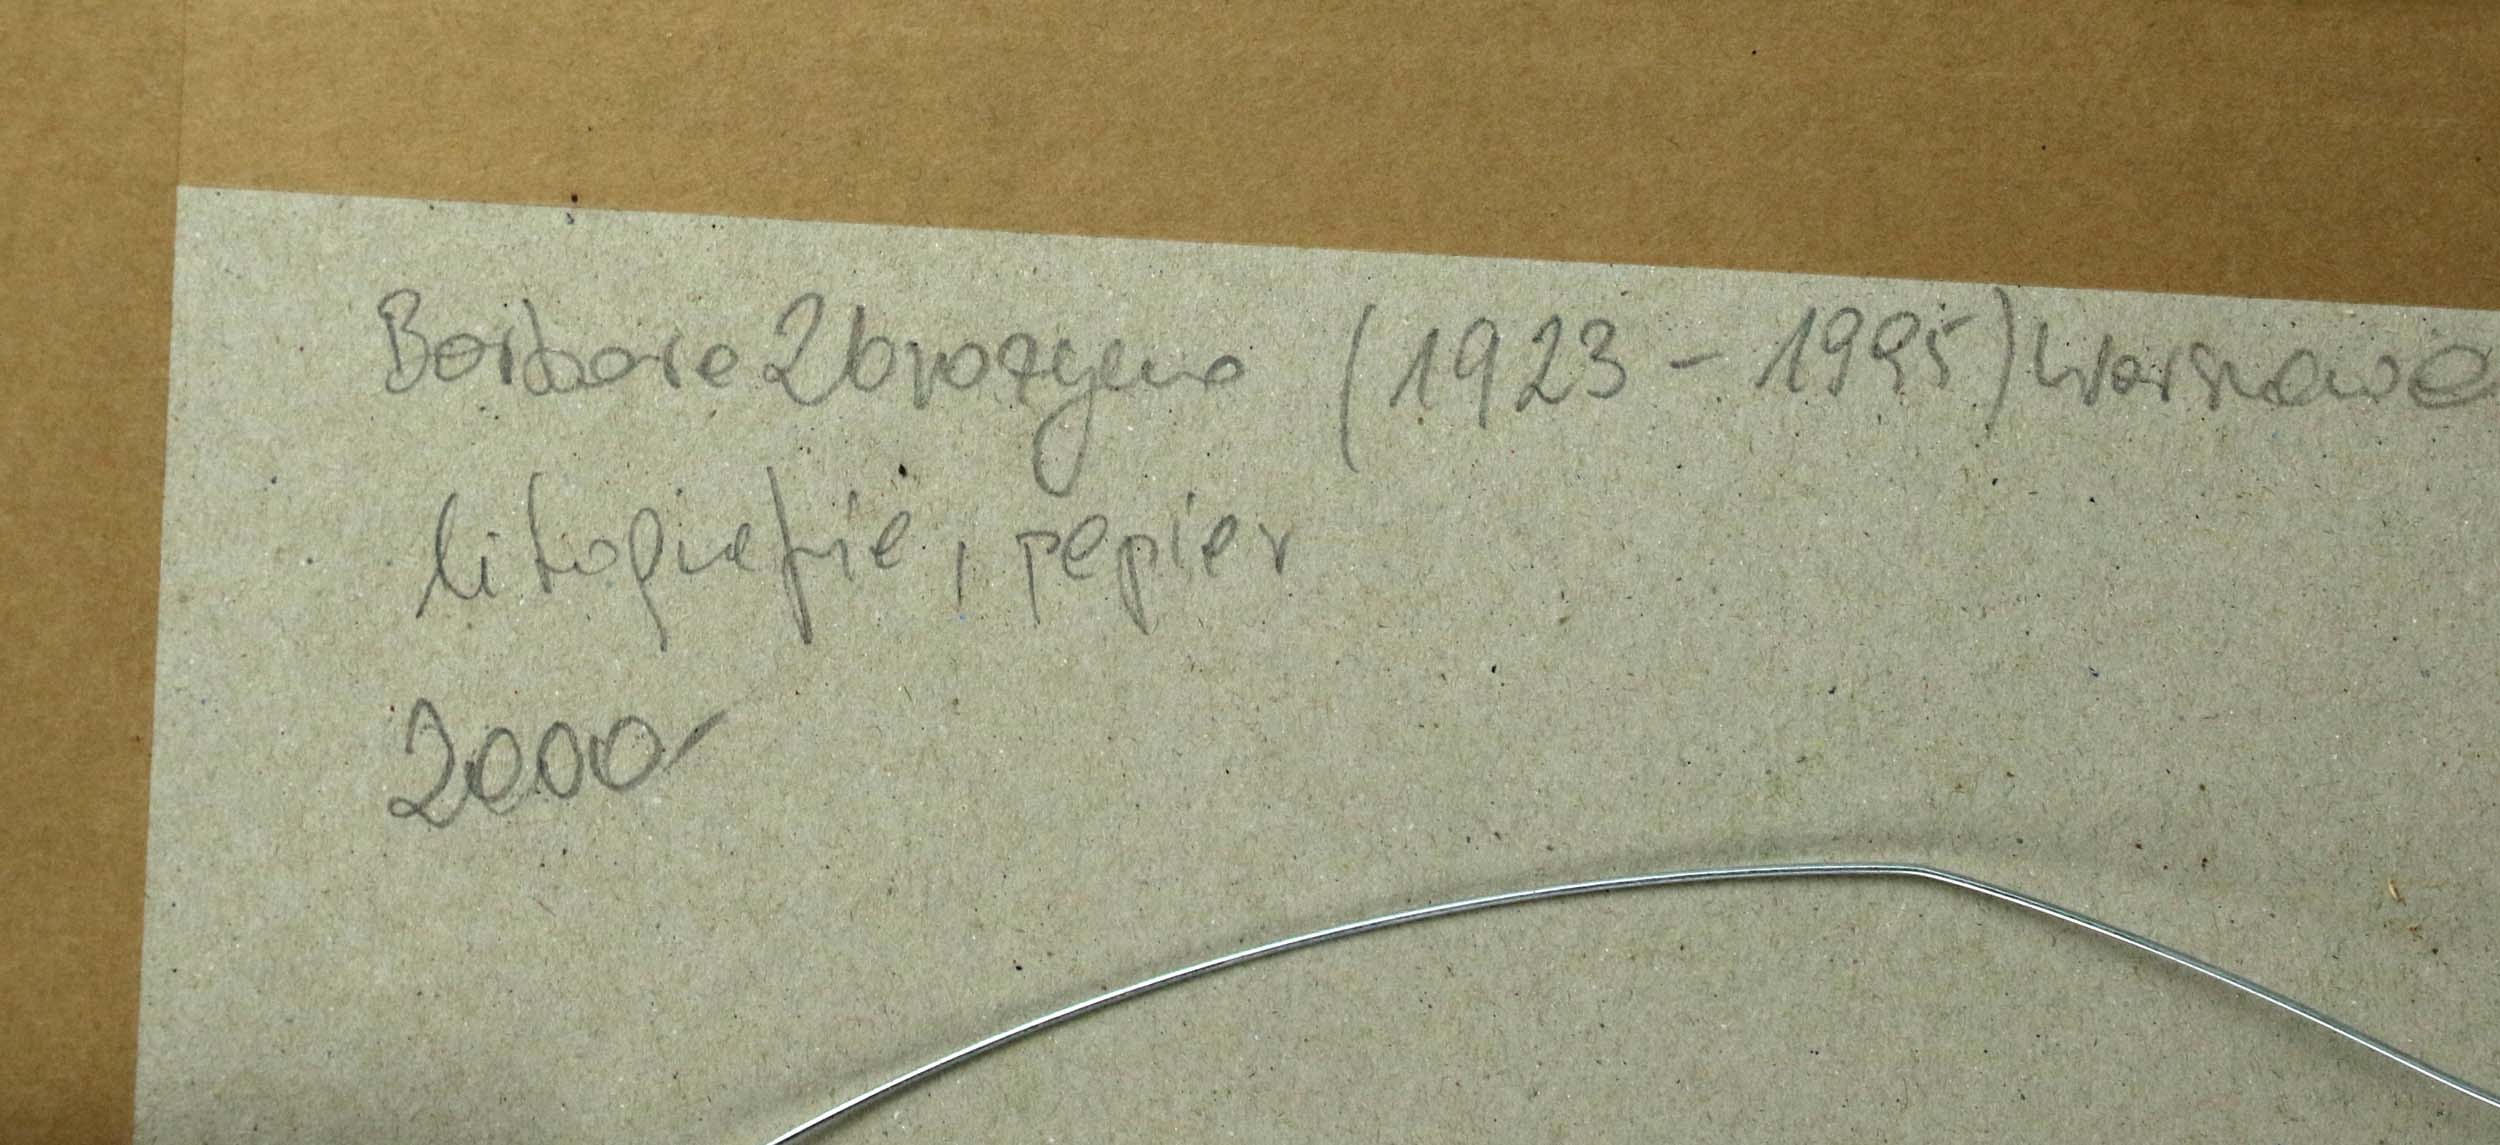 Barbara Zbrożyna (1923 - 1995) Warszawa
litografia, papier
2000-